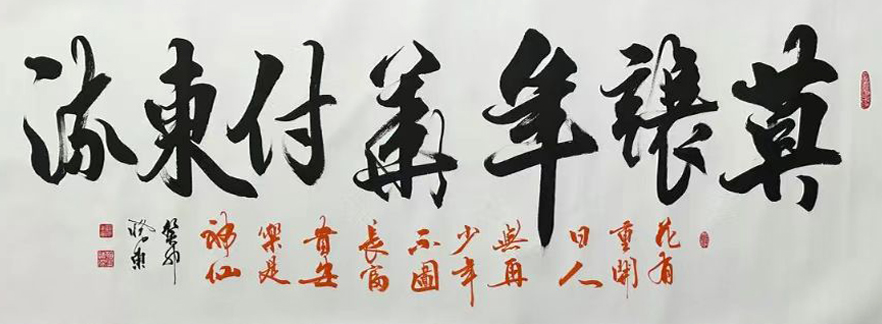 莫讓年華付東流
花有
重開
日人
無再
少年
不圖
長富
貴安
樂是
神仙
癸卯